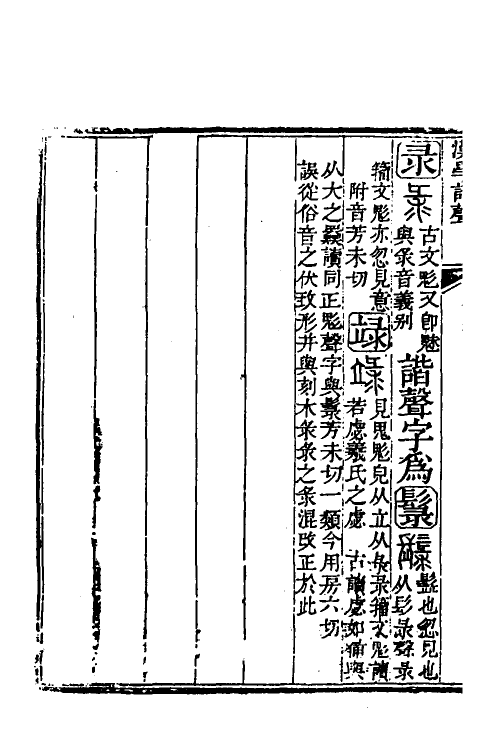 漢學諧聲
彔 古文鬽又卽魅
與彔音義别
諧聲字爲
鬽 髲也忽見也
从髟彔聲彔
籀文鬽亦忽見意
附音芳未切
見鬼鬽皃从立从彔彔籀文鬽讀
若虙羲氏之虙 古讀虙如
从大之 讀同正鬽聲字與 芳未切一類今用房六切
誤從俗音之伏攷形并與刻木彔彔之彔混攺正於此